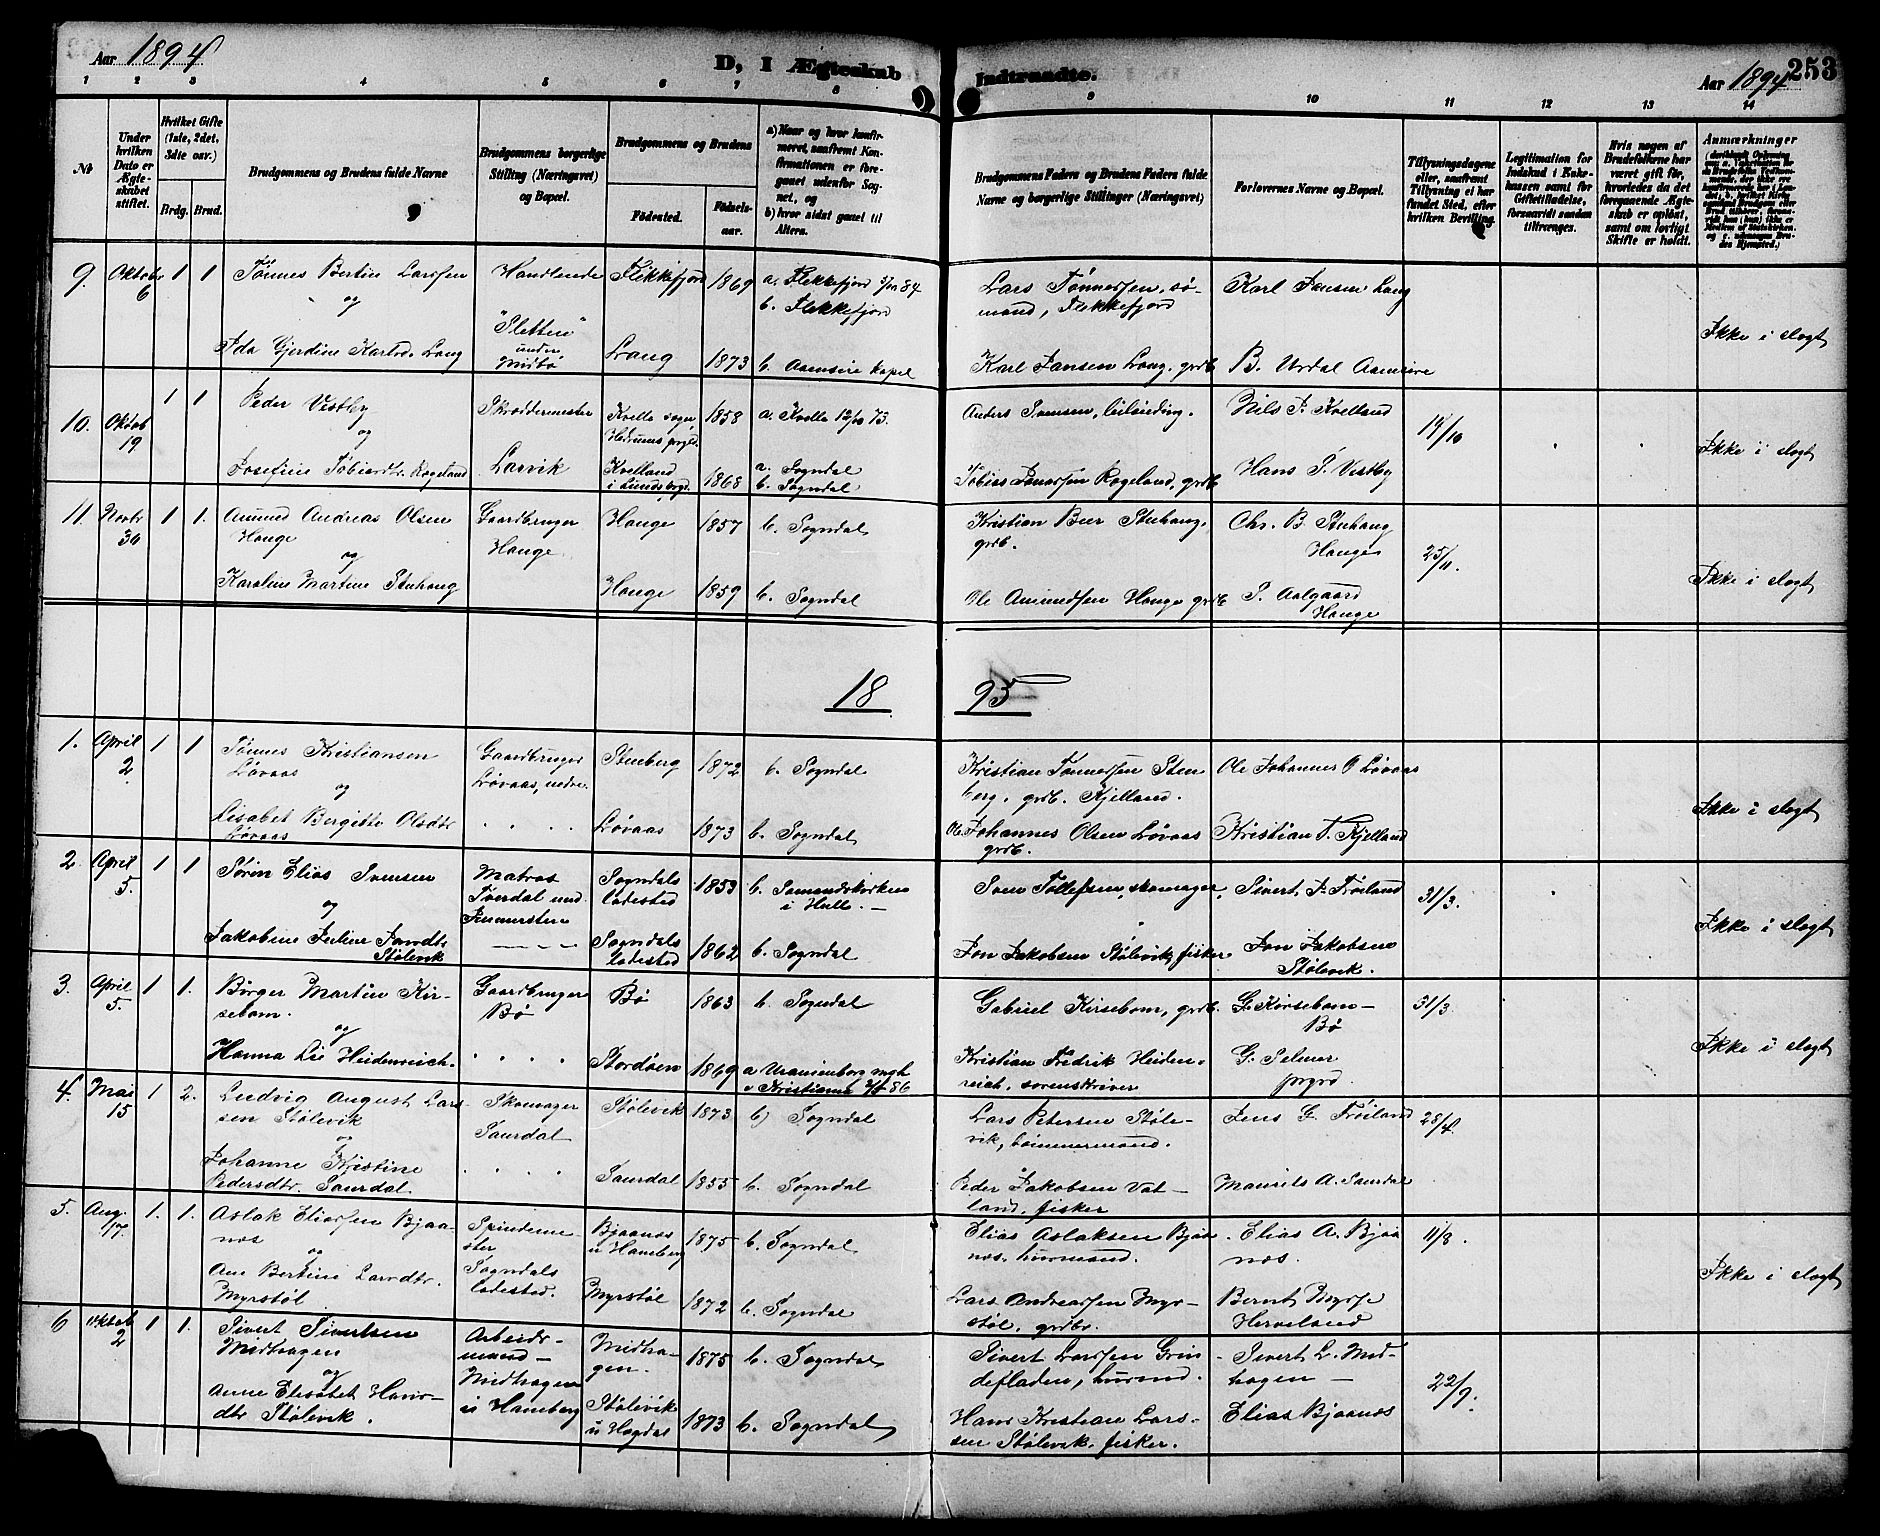 Aar 1894
D, I Ægteskab Indtraadte.
Aar 1894
253
1 2 3 4 5 6 7 8 9 10 11 12 13 14
№
Under hvilken Dato er Ægteskabet stiftet.
Hvilket Gifte (1ste, 2det, 3die osv.)
Brdg. Brud.
Brudgommens og Brudens fulde Navne
Brudgommens borgerlige Stilling (Næringsvei) og Bopæl.
Brudgommens og Brudens
Fødested.
Fødsels-aar.
a) Naar og hvor konfirmeret, saafremt Konfirmationen er foregaaet udenfor Sognet, og
b) hvor sidst gaaet til Alters.
Brudgommens Faders og Brudens Faders fulde Navne og borgerlige Stillinger (Næringsvei)
Forlovernes Navne og Bopæl.
Tillysningsdagene eller, saafremt Tillysning ei har fundet Sted, efter hvilken Bevilling.
Legitimation for Indskud i Enkekassen samt for Giftetilladelse, forsaavidt saadan tiltrænges.
Hvis nogen af Brudefolkene har været gift før, hvorledes da det foregaaende Ægteskab er opløst, samt om lovligt Skifte er holdt.
Anmærkninger
9. Oktob 6 1 1 Tønnes Bertin Larssen
og
Ida Gjerdine Karlsd. Lang
Handlende
"Sletten"
under
Midbø
Flekkefjord 1869 a. Flekkefjord 84
b. Flekkefjord
Lang 1873 b. Aamsire kapel
Lars Tønnessen, sømand, Flekkefjord
Karl Jansen Lang, grdb
Karl Jansen Lang
B. Urdal Aamsire
Ikke i slegt
10. Oktob 19 1 1 Peder Vestby
og
Josefine Tobiasdtr. Rageland
Skræddermester
Larvik
Kvelle sogn, Hedrums prgld. 1858 a. Kvelle 12/10 73.
Kvelland i Lunds prgld. 1868 a. Sogndal
b. Sogndal
Anders Svensen, leilænding.
Tobias Jonassen Rageland, grdb
Nils J. Kvelland
Hans P. Vestby
19/10
Ikke i slegt
11. Novbr 30 1 1. Aamund Andreas Olsen
Hauge
og
Karoline Martine Stuhaug
Gaardbruger
Hauge
Hauge 1857 b. Sogndal
Hauge 1859 b. Sogndal
Kristian Beer Stuhaug, grdb.
Ole Aamundsen Hauge grdb
Chr. B. Stuhaug
Hauge
P. Aalgaard
Hauge
25/11.
Ikke i slegt
18 95
1. April 2 1 1 Tønnes Kristiansen
Løvaas
og
Lisabet Bergitte Olsdtr
Løvaas
Gaardbruger
Løvaas, nedre
Stenberg 1872 b. Sogndal
Løvaas 1873 b. Sogndal
Kristian Tønnessen Stenberg, grdb. Kjelland.
Ole Johannes Olsen Løvaas
grdb.
Ole Johannes O Løvaas
Kristian T. Kjelland
Ikke i slegt
2. April 5. 1 1 Søren Elias Svensen
og
Jakobine Juline Jonsdtr
Stølevik
Matros
Tverdal und.
Sogndals ladested 1853 b. Sømandskirken
i Hull. —
Sogndals ladested 1862 b. Sogndal
Sven Tollefsen, skomager,
Jon Jakobsen Stølevik, fisker
Sivert J. Frøiland
Jon Jakobsen
Stølevik.
31/3.
Ikke i slegt
3. April 5. 1 1. Børger Martin Kirsebom.
og
Hanna Lie Heidenreich.
Gaardbruger
Bø
Bø 1863 b. Sogndal
Stordøen 1869 a Uranienborg mgh
Kristiania 86
Gabriel Kirsebom, grdb.
Kristian Fredrik Heidenreich, sorenskriver
G. Kirsebom
Bø
G. Selmer
prgrd.
31/3
Ikke i slegt
4. Mai 15 1 2. Ludvig August Larssen Stølevik
og
Johanne Kristine
Pedersdtr. Saurdal
Skomager
Saurdal
Stølevik 1873 b) Sogndal
Saurdal 1855 b. Sogndal
Lars Petersen Stølevik, tømmermand.
Peder Jakobsen Vatland, fisker
Jens G. Frøiland
Maurits A. Saurdal
28/4.
5. Aug. 17. 1. 1. Aslak Eliassen Bjaanes
og
Ane Bertine Larsdtr.
Myrstøl
Sogndals
ladested.
Bjaanes u Hamberg 1875 b. Sogndal
Myrstøl 1872 b. Sogndal
Elias Aslaksen Bjaanes, husmand.
Lars Andreassen Myrstøl, grdbr.
Elias A. Bjaanes.
Bernt
Herveland
11/8.
Ikke i slegt
6 Oktob 2 1 1. Sivert Sivertsen
Midhagen
og
Anne Elisabet Hansdtr Stølevik.
Arbeidsmand —
Midhagen
u Hamberg
Midhagen. 1875 b. Sogndal
Stølevik u Hogdal 1873 b. Sogndal
Sivert Larssen Grindefladen, husmd.
Hans Kristian Larssen Stølevik, fisker.
Sivert L. Midhagen —
Elias Bjaanes
22/9.